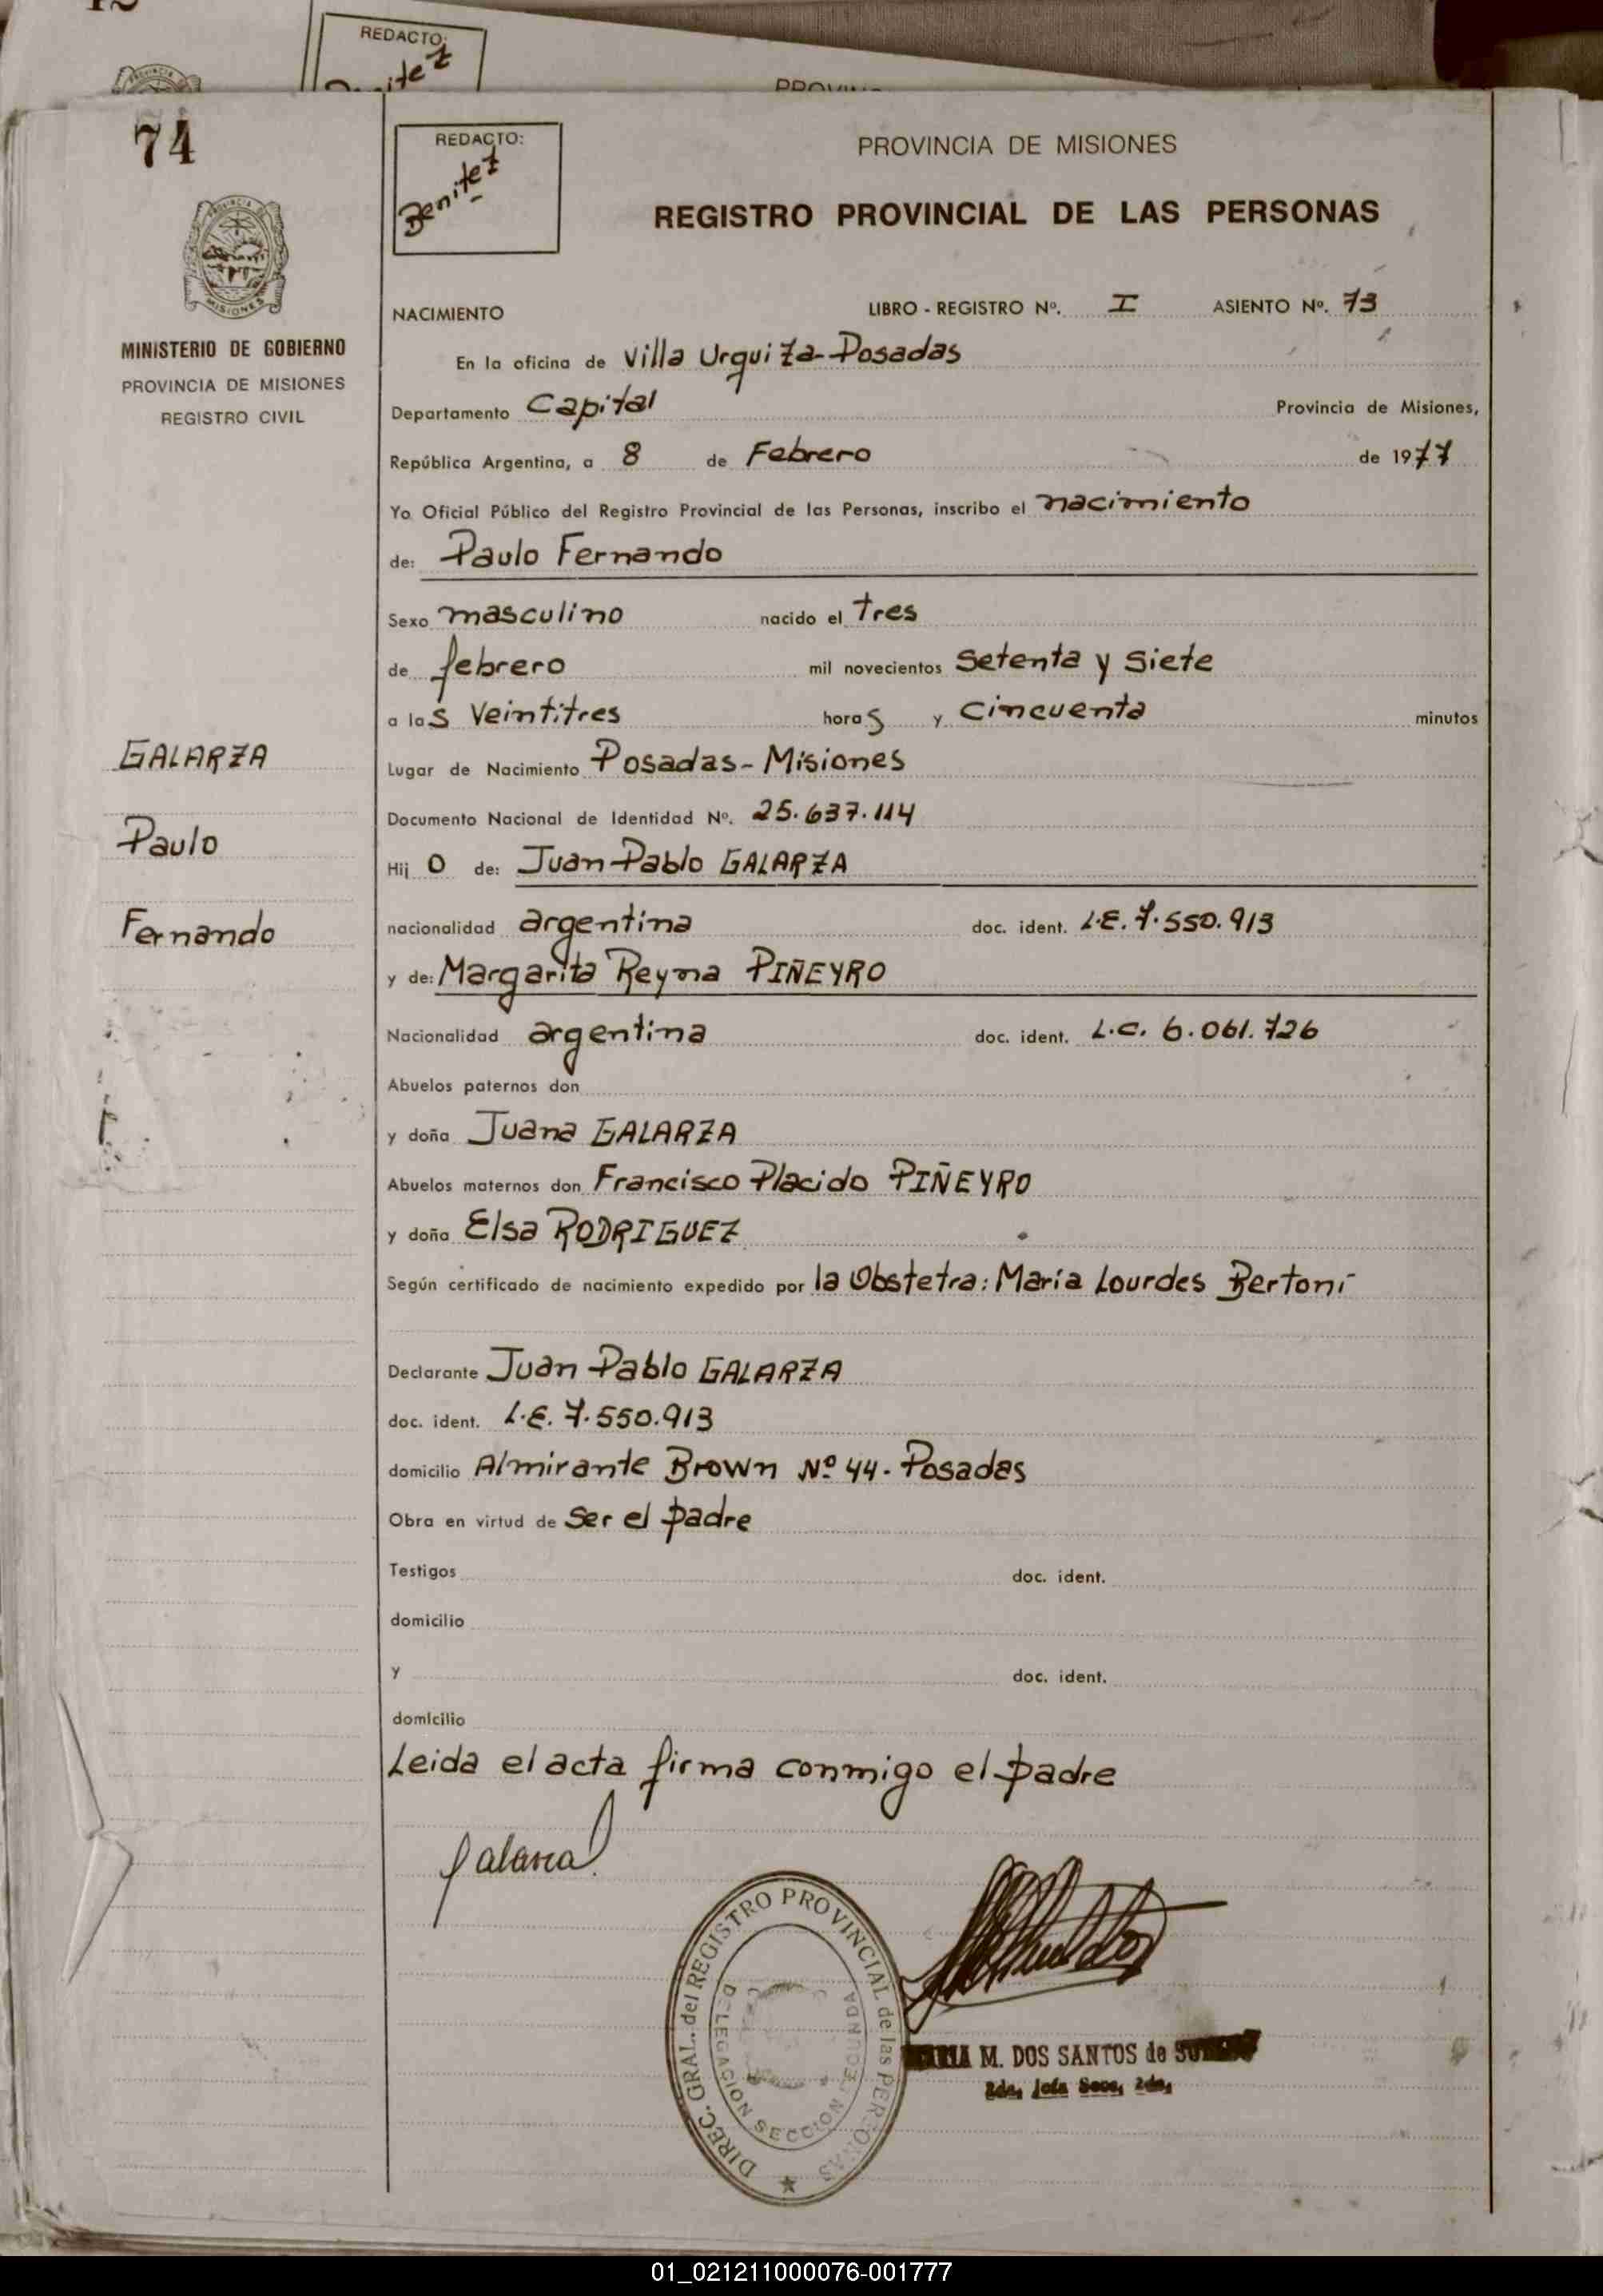 REDACTO:
Benitez
74
REDACTO:
Benitez
PROVINCIA DE MISIONES
REGISTRO PROVINCIAL DE LAS PERSONAS
MISIONES
MINISTERIO DE GOBIERNO
PROVINCIA DE MISIONES
REGISTRO CIVIL
NACIMIENTO LIBRO - REGISTRO Nº. I ASIENTO Nº. 73
En la oficina de Villa Urquiza-Posadas
Departamento Capital Provincia de Misiones,
República Argentina, a 8 de Febrero de 1977
Yo Oficial Público del Registro Provincial de las Personas, inscribo el nacimiento
de: Paulo Fernando
Sexo masculino nacido el tres
de febrero mil novecientos setenta y siete
a las veintitres horas y cincuenta minutos
GALARZA
Lugar de Nacimiento Posadas-Misiones
Documento Nacional de Identidad Nº. 25.637.114
Paulo
Hij o de: Juan Pablo GALARZA
Fernando
nacionalidad argentina doc. ident. L.E. 7.550.913
y de: Margarita Reyna PIÑEYRO
Nacionalidad argentina doc. ident. L.C. 6.061.726
Abuelos paternos don
y doña Juana GALARZA
Abuelos maternos don Francisco Placido PIÑEYRO
y doña Elsa RODRIGUEZ
Según certificado de nacimiento expedido por la Obstetra: María Lourdes Bertoni
Declarante Juan Pablo GALARZA
doc. ident. L.E. 7.550.913
domicilio Almirante Brown Nº 44. Posadas
Obra en virtud de ser el padre
Testigos doc. ident.
domicilio
y doc. ident.
domicilio
Leida el acta firma conmigo el padre
Galarza
DIREC. GRAL. del REGISTRO PROVINCIAL de las PERSONAS
DELEGACION SECCION SEGUNDA
M. DOS SANTOS de
01_021211000076-001777